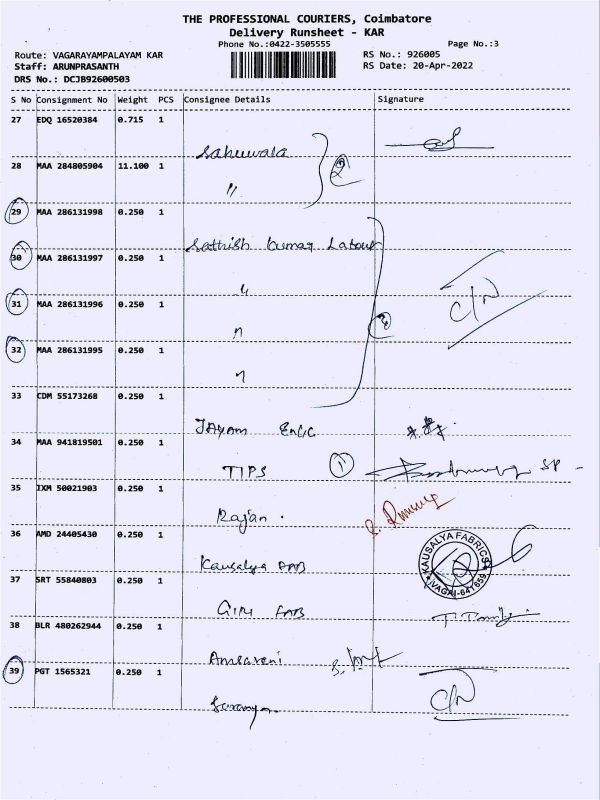 THE PROFESSIONAL COURIERS, Coimbatore
Delivery Runsheet - KAR
Phone No.:0422-3505555
Page No.:3
Route: VAGARAYAMPALAYAM KAR
RS No.: 926005
Staff: ARUNPRASANTH
RS Date: 20-Apr-2022
DRS No.: DCJB92600503
S No Consignment No Weight PCS Consignee Details Signature
27 EDQ 16520384 0.715 1
Sahuwala
2
28 MAA 284805904 11.100 1
"
29 MAA 286131998 0.250 1
Sathish Kumar
30 MAA 286131997 0.250 1
"
C/N
31 MAA 286131996 0.250 1
"
4
32 MAA 286131995 0.250 1
"
33 CDM 55173268 0.250 1
JAYAM
34 MAA 941819501 0.250 1
TIPS
1
SP
35 IXM 50021903 0.250 1
Rajan.
36 AMD 24405430 0.250 1
Kausalya FAB
KAUSALYA FABRICS
VAGAI-641659
37 SRT 55840803 0.250 1
GIRI FAB
38 BLR 480262944 0.250 1
Amsaveni
39 PGT 1565321 0.250 1
Saranya
C/N